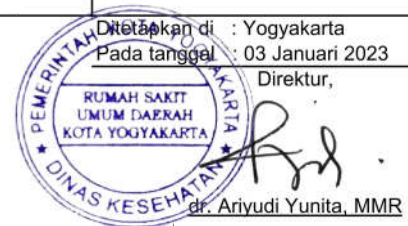 Ditetapkan di : Yogyakarta
Pada tanggal : 03 Januari 2023
Direktur,
PEMERINTAH KOTA YOGYAKARTA
RUMAH SAKIT
UMUM DAERAH
KOTA YOGYAKARTA
DINAS KESEHATAN
dr. Ariyudi Yunita, MMR